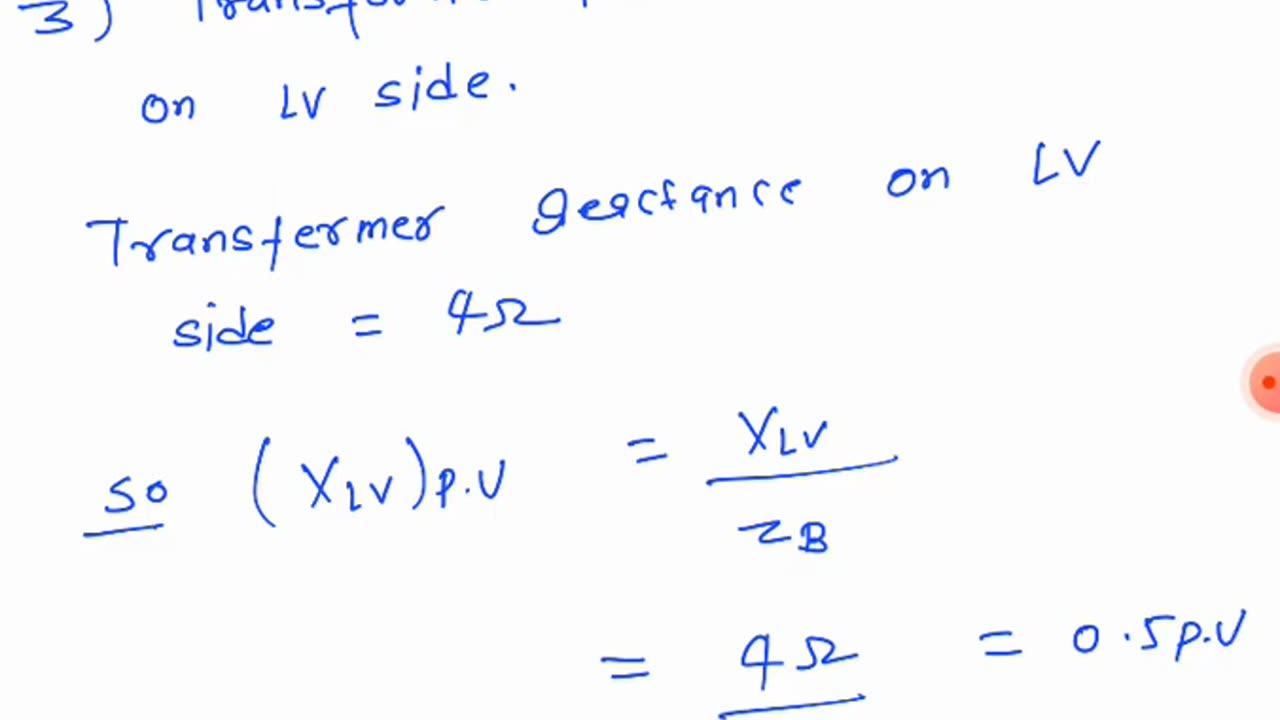 3)
on LV side.
Transformer reactance on LV
side = 4Ω
so (XLV)P.U = XLV
ZB
= 4Ω = 0.5 P.U